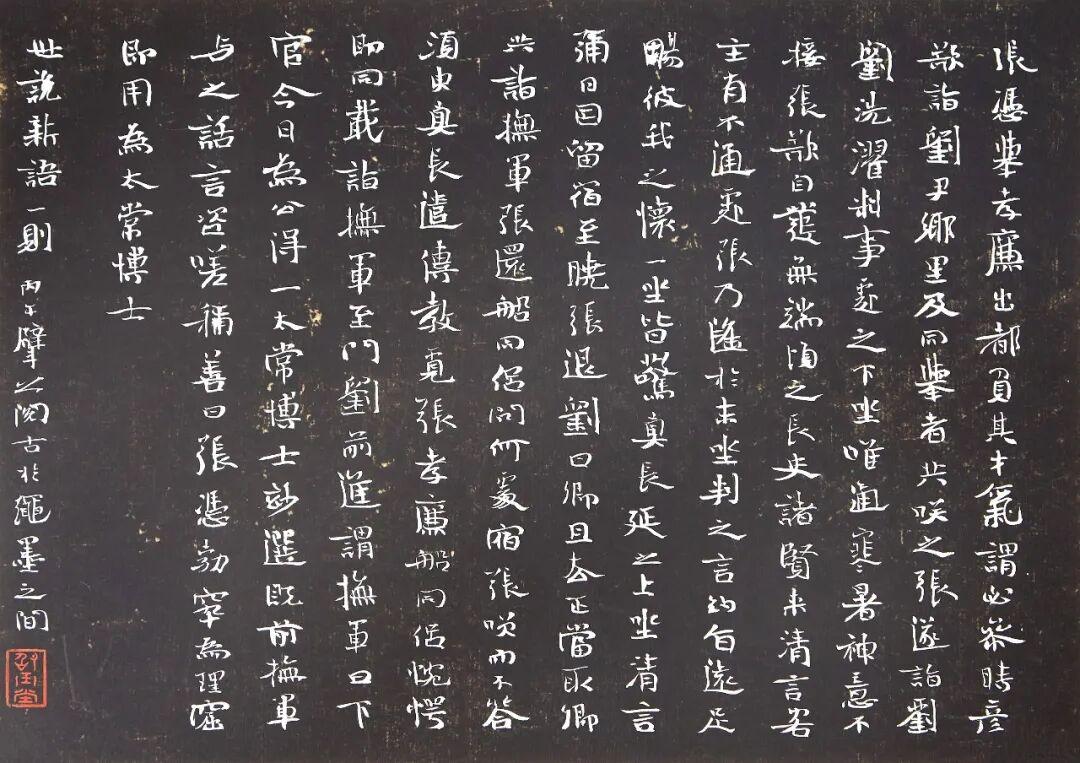 張憑舉孝廉出都負其才氣謂必參時彥
欲詣劉尹鄉里及同舉者共咲之張遂詣劉
劉洗濯料事處之下坐唯通寒暑神意不
接張欲自發無端頃之長史諸賢来清言客
主有不通處張乃遙於末坐判之言約旨遠足
暢彼我之懷一坐皆驚真長延之上坐清言
彌日因留宿至曉張退劉曰卿且去正當取卿
共詣撫軍張還船同侶問何處宿張咲而不答
須臾真長遣傳教覓張孝廉船同侶惋愕
即同載詣撫軍至門劉前進謂撫軍曰下
官今日為公得一太常博士妙選既前撫軍
与之話言咨嗟稱善曰張憑勃窣為理窟
即用為太常博士
世說新語一則 丙午肇公閣古於繩墨之間